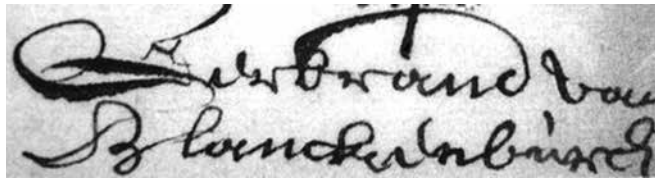 Gerbrand van
Blanckenburch